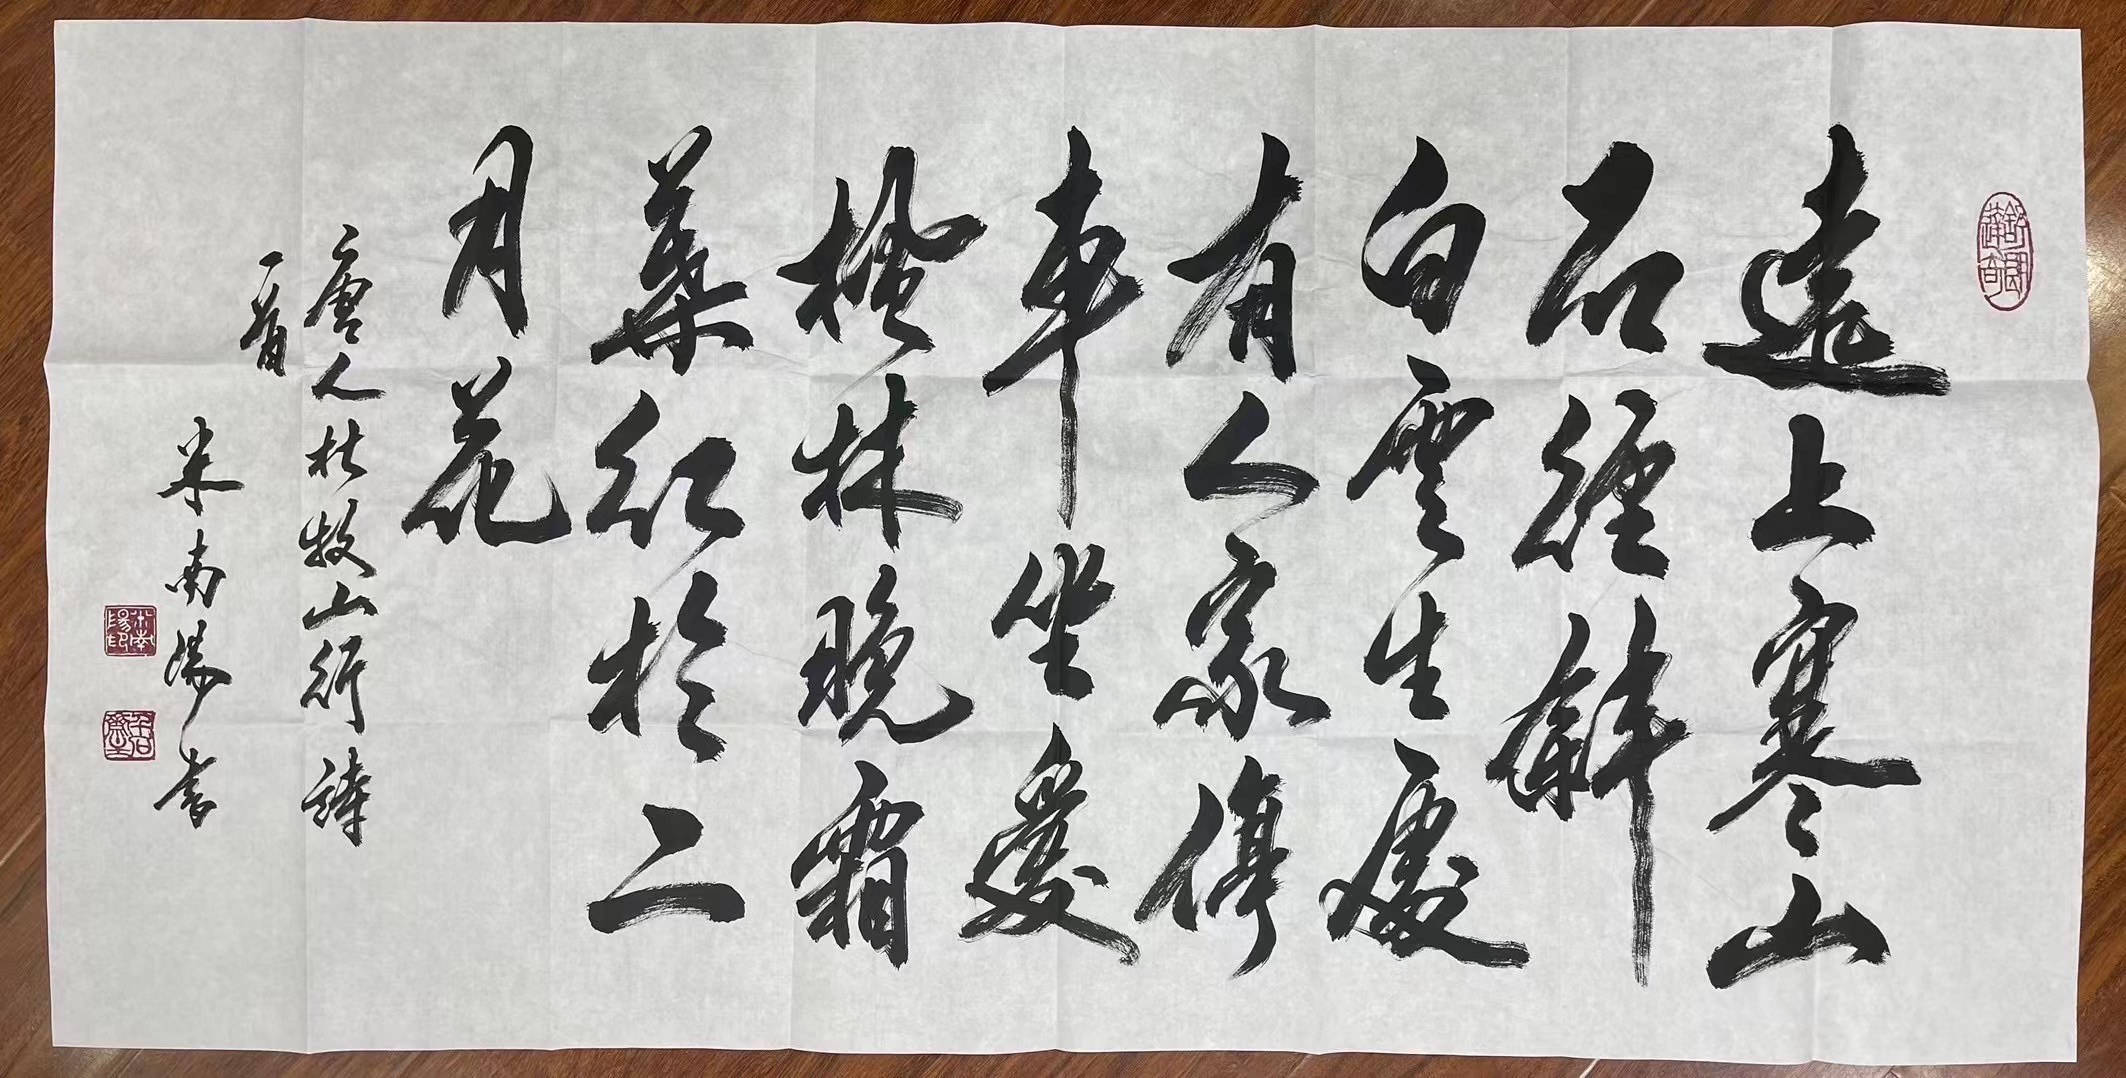 遠上寒山
石徑斜
白雲生處
有人家停
車坐愛
楓林晚霜
葉紅於二
月花
唐人杜牧山行詩
一首
米南陽書
米南陽印